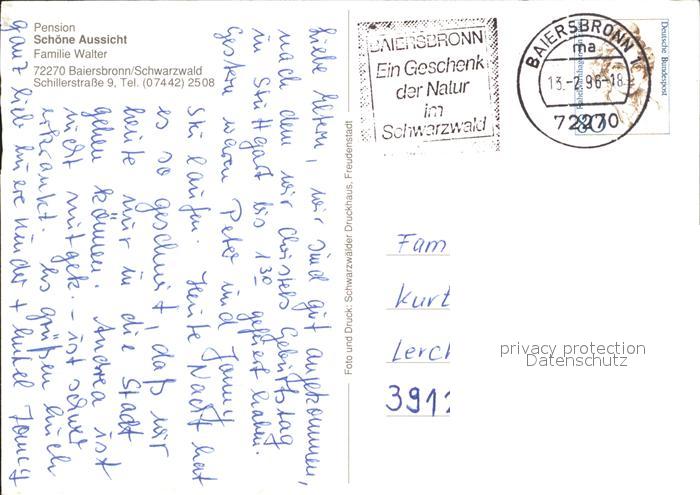 Pension
Schöne Aussicht
Familie Walter
72270 Baiersbronn/Schwarzwald
Schillerstraße 9, Tel. (07442) 2508
Liebe Eltern, wir sind gut angekommen,
nach dem wir Christels Geburtstag
in Stuttgart bis 1 30 gefeiert haben.
Gestern waren Peter und Jonny
Ski laufen. Heute Nacht hat
es so geschneit, daß wir
heute nur in die Stadt
gehen können. Andrea ist
nicht mitgek. – ist schwer
erkrankt. Es grüßen Euch
ganz lieb Eure Kinder +
Foto und Druck: Schwarzwälder Druckhaus, Freudenstadt
BAIERSBRONN
Ein Geschenk
der Natur
im
Schwarzwald
BAIERSBRONN 1
ma
13.-2.96-18
72270
Deutsche Bundespost
80
Fam
Kurt
Lerch
3912
privacy protection
Datenschutz